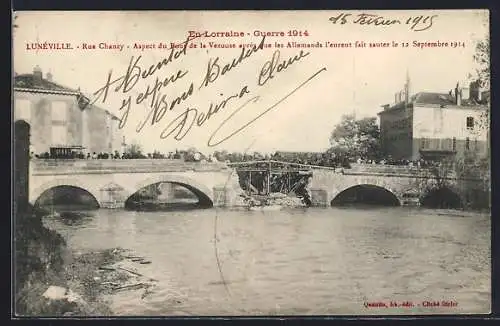 En Lorraine - Guerre 1914
15 Février 1915
LUNÉVILLE. - Rue Chanzy - Aspect du Pont de la Vezouse après que les Allemands l'eurent fait sauter le 12 Septembre 1914
A Bientôt
j'y espère
Bons Baisers
Claire
Quantin, éditr.